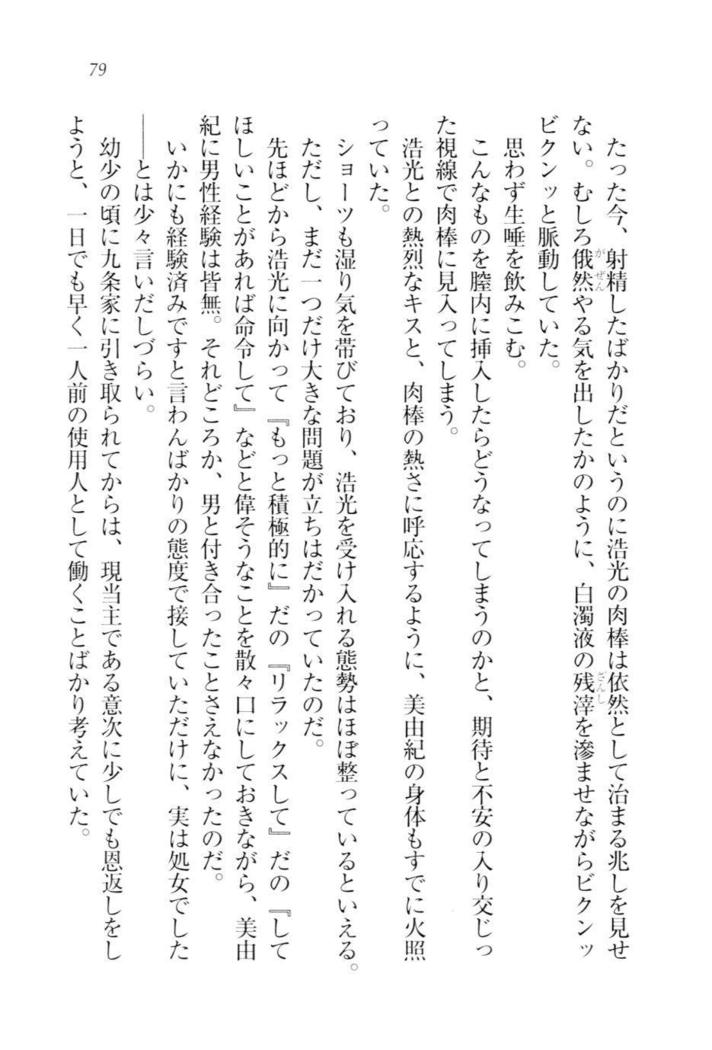 79
たった今、射精したばかりだというのに浩光の肉棒は依然として治まる兆しを見せ
ない。むしろ俄然やる気を出したかのように、白濁液の残滓を滲ませながらビクンッ
ビクンッと脈動していた。
思わず生唾を飲みこむ。
こんなものを膣内に挿入したらどうなってしまうのかと、期待と不安の入り交じっ
た視線で肉棒に見入ってしまう。
浩光との熱烈なキスと、肉棒の熱さに呼応するように、美由紀の身体もすでに火照
っていた。
ショーツも湿り気を帯びており、浩光を受け入れる態勢はほぼ整っているといえる。
ただし、まだ一つだけ大きな問題が立ちはだかっていたのだ。
先ほどから浩光に向かって『もっと積極的に』だの『リラックスして』だの『して
ほしいことがあれば命令して』などと偉そうなことを散々口にしておきながら、美由
紀に男性経験は皆無。それどころか、男と付き合ったことさえなかったのだ。
いかにも経験済みですと言わんばかりの態度で接していただけに、実は処女でした
――とは少々言いだしづらい。
幼少の頃に九条家に引き取られてからは、現当主である意次に少しでも恩返しをし
ようと、一日でも早く一人前の使用人として働くことばかり考えていた。